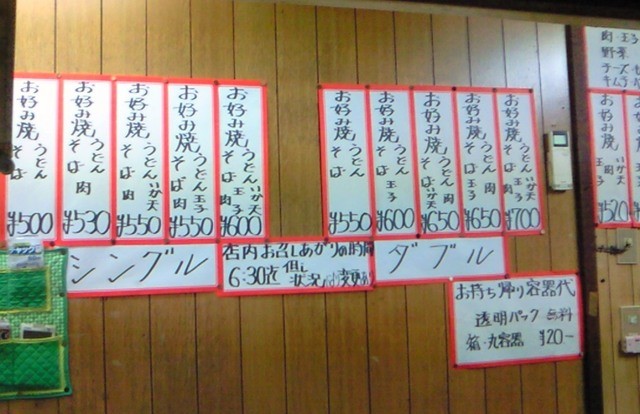 お好み焼 うどん そば ¥500
お好み焼 うどん そば 肉 ¥530
お好み焼 うどん そば いか天 肉 ¥550
お好み焼 うどん そば 肉 玉子 ¥550
お好み焼 うどん そば いか天 肉 玉子 ¥600
シングル
店内お召しあがりの時間
6:30迄 但し
状況により変更あり
お好み焼 うどん そば ¥550
お好み焼 うどん そば 玉子 ¥600
お好み焼 うどん そば いか天 ¥650
お好み焼 うどん そば 肉 玉子 ¥650
お好み焼 うどん そば いか天 肉 玉子 ¥700
ダブル
お持ち帰り容器代
透明パック 無料
箱・丸容器 ¥20-
肉・玉子
野菜
チーズ
キムチ
お好み焼 ¥520